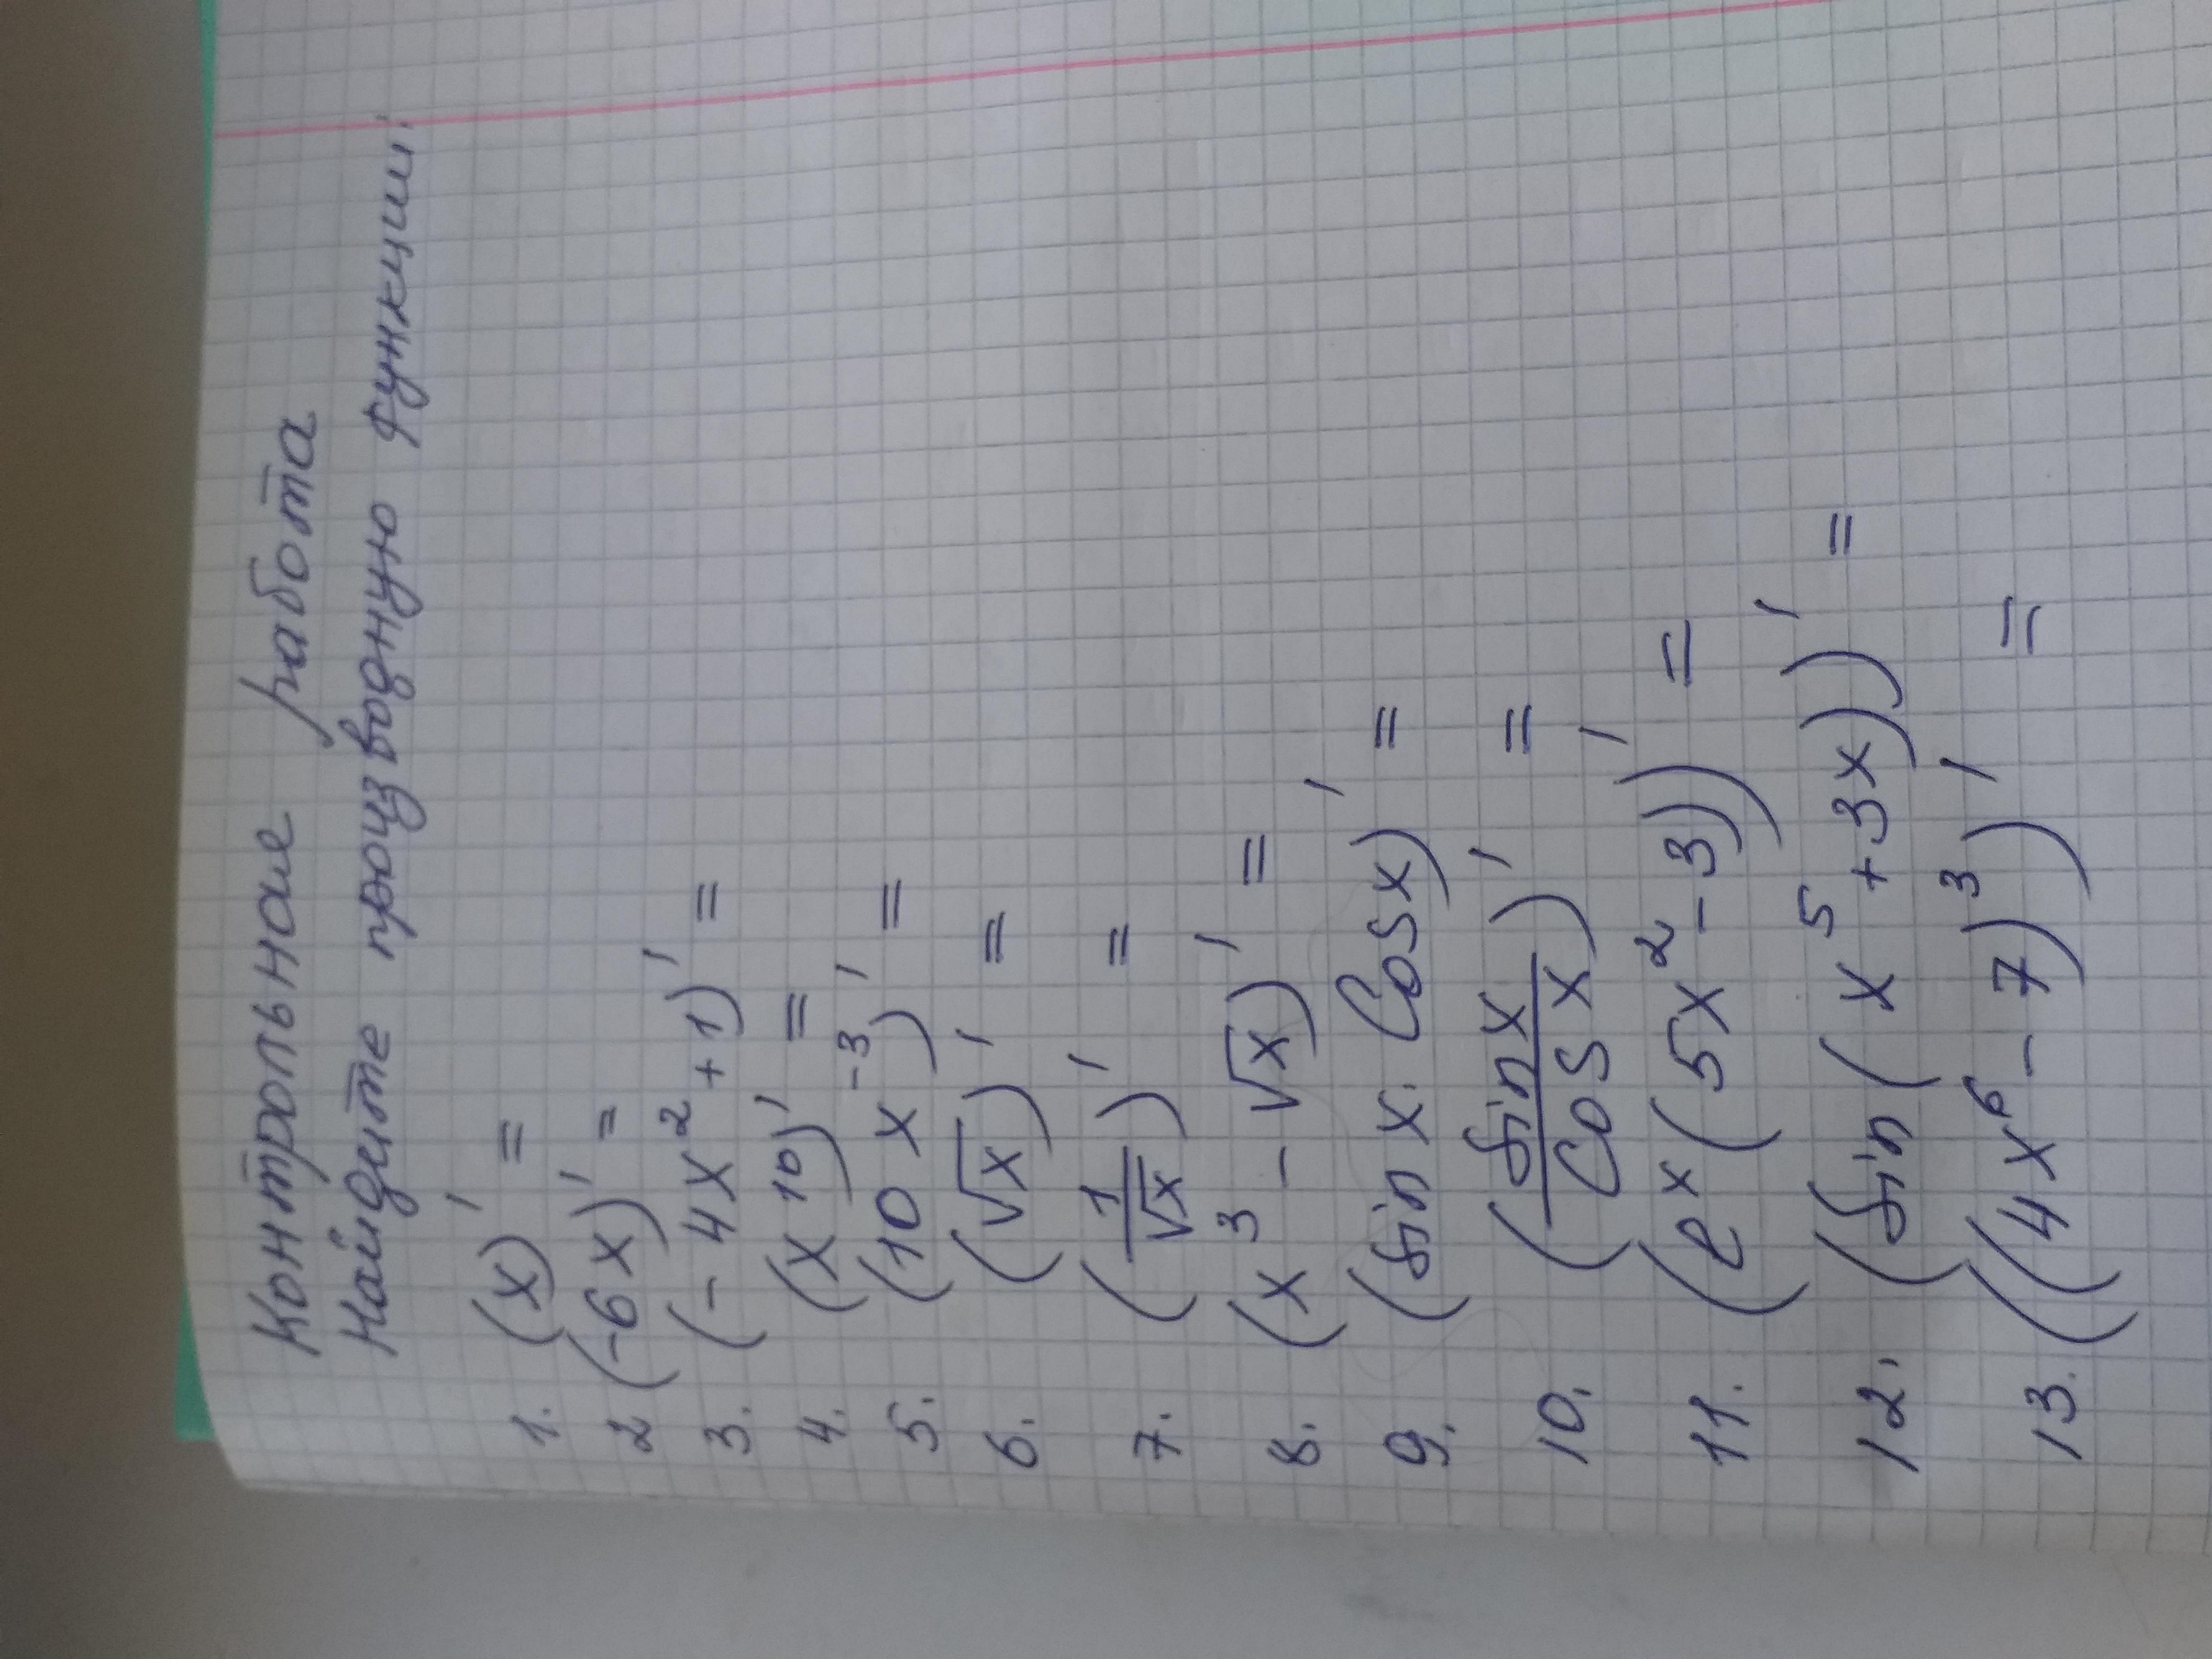 Контрольная работа
Найдите производную функции:
1. (x)' =
2 (-6x)' =
3. (-4x² + 1)' =
4. (x¹⁰)' =
5. (10x⁻³)' =
6. (√x)' =
7. (1/√x)' =
8. (x³ - √x)' =
9. (sin x · Cos x)' =
10. (sin x / Cos x)' =
11. (eˣ(5x² - 3))' =
12. (sin(x⁵ + 3x))' =
13. ((4x⁶ - 7)³)' =